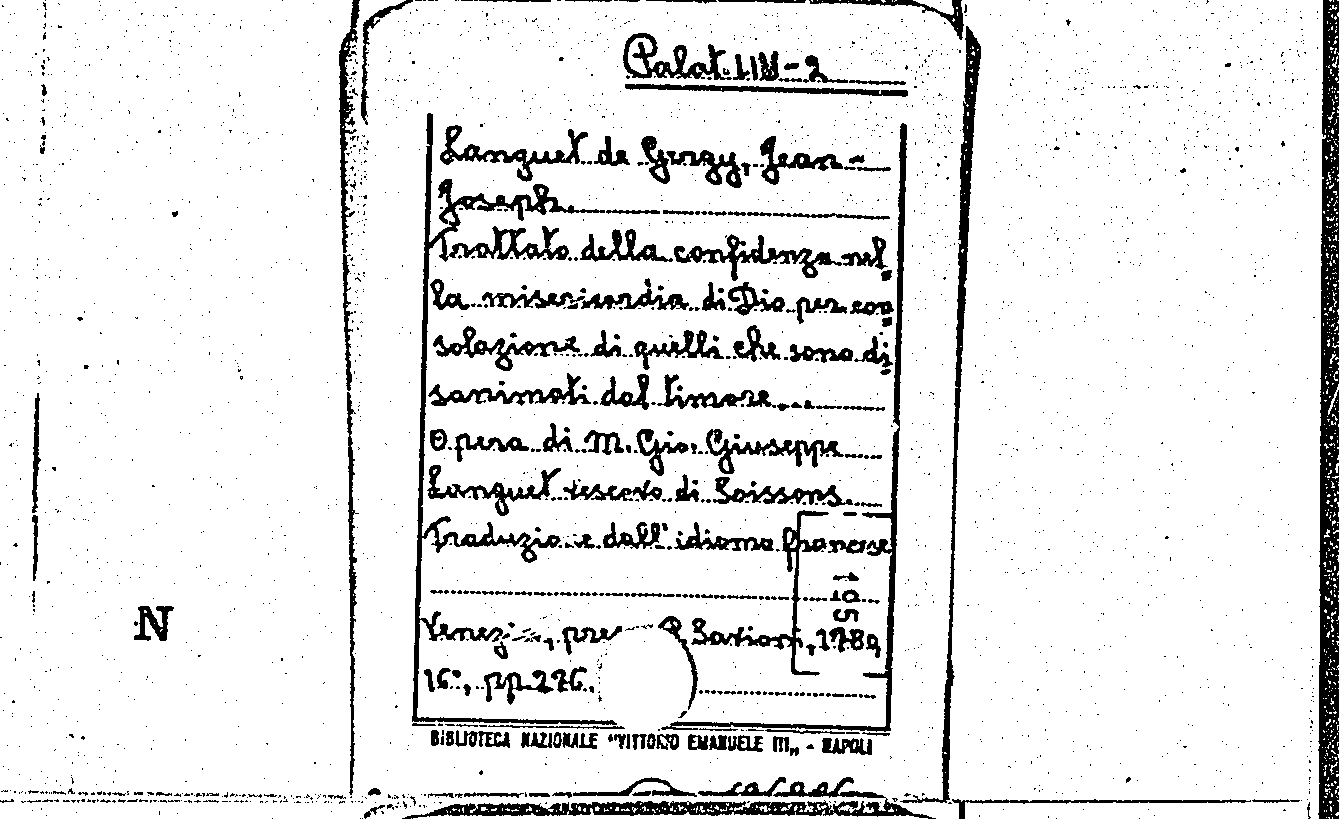 Palat. LIII-2
Languet de Gergy, Jean-
Joseph.
Trattato della confidenza nel=
la misericordia di Dio per con=
solazione di quelli che sono di=
sanimati dal timore...
Opera di M. Gio. Giuseppe
Languet vescovo di Soissons.
Traduzione dall' idioma francese
Venezia, P. Savioni, 1780
16°, pp. 276.
105
BIBLIOTECA NAZIONALE "VITTORIO EMANUELE III„ - NAPOLI
N